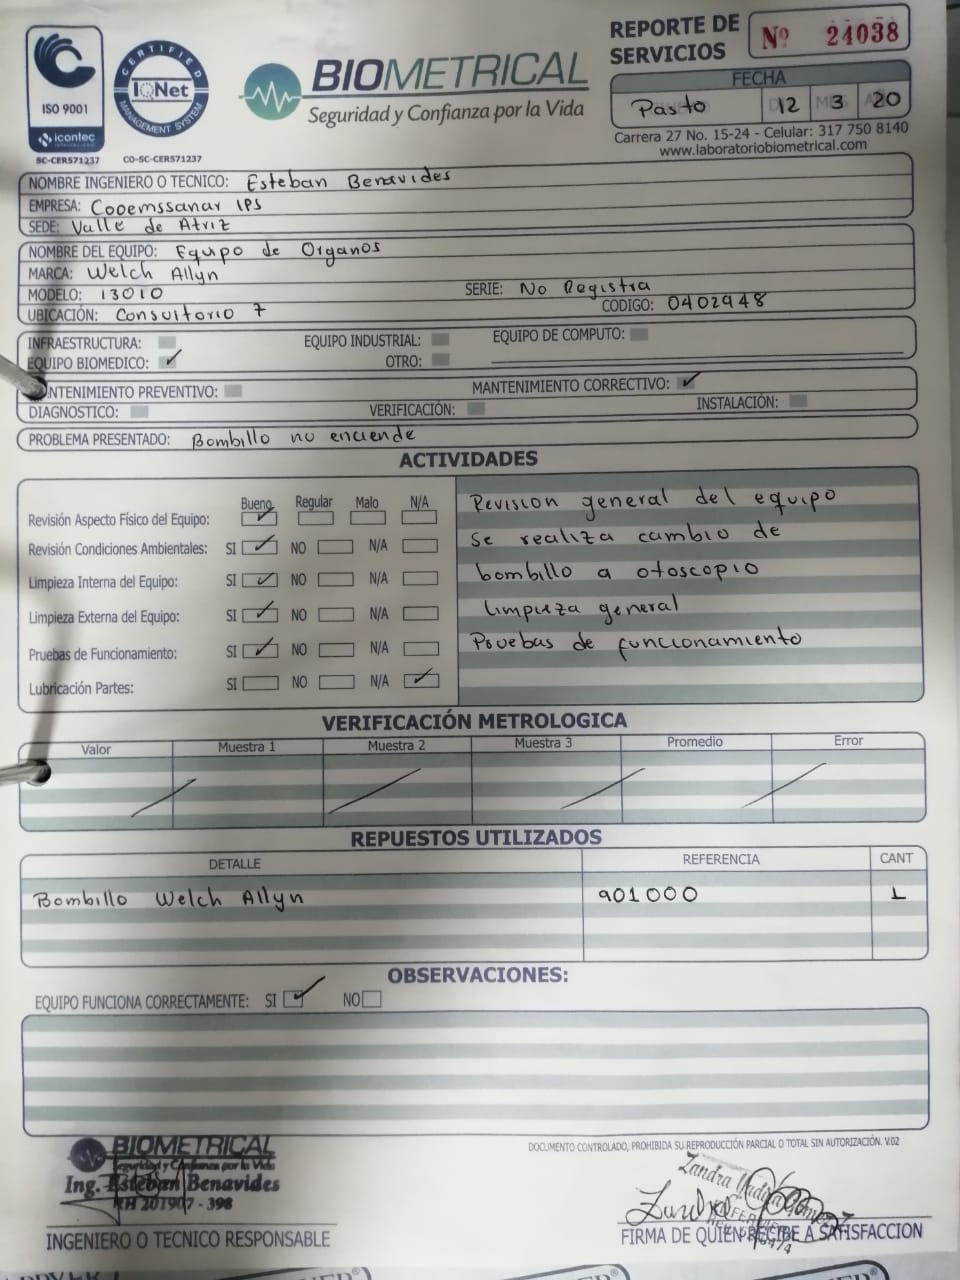 ISO 9001
icontec
SC-CER571237
CERTIFIED
IQNet
MANAGEMENT SYSTEM
CO-SC-CER571237
BIOMETRICAL
Seguridad y Confianza por la Vida
REPORTE DE
SERVICIOS
Nº 24038
FECHA
Pasto 12 3 20
Carrera 27 No. 15-24 - Celular: 317 750 8140
www.laboratoriobiometrical.com
NOMBRE INGENIERO O TECNICO: Esteban Benavides
EMPRESA: Cooemssanar IPS
SEDE: Valle de Atriz
NOMBRE DEL EQUIPO: Equipo de Organos
MARCA: Welch Allyn
MODELO: 13010 SERIE: No Registra
UBICACIÓN: Consultorio 7 CODIGO: 0402948
INFRAESTRUCTURA: EQUIPO INDUSTRIAL: EQUIPO DE COMPUTO:
EQUIPO BIOMEDICO: ✓ OTRO:
NTENIMIENTO PREVENTIVO: MANTENIMIENTO CORRECTIVO: ✓
DIAGNOSTICO: VERIFICACIÓN: INSTALACIÓN:
PROBLEMA PRESENTADO: Bombillo no enciende
ACTIVIDADES
Bueno Regular Malo N/A
Revisión Aspecto Físico del Equipo: ✓
Revisión Condiciones Ambientales: SI ✓ NO N/A
Limpieza Interna del Equipo: SI ✓ NO N/A
Limpieza Externa del Equipo: SI ✓ NO N/A
Pruebas de Funcionamiento: SI ✓ NO N/A
Lubricación Partes: SI NO N/A ✓
Revision general del equipo
Se realiza cambio de
bombillo a otoscopio
Limpieza general
Pruebas de funcionamiento
VERIFICACIÓN METROLOGICA
Valor Muestra 1 Muestra 2 Muestra 3 Promedio Error
REPUESTOS UTILIZADOS
DETALLE REFERENCIA CANT
Bombillo Welch Allyn 901000 1
OBSERVACIONES:
EQUIPO FUNCIONA CORRECTAMENTE: SI ✓ NO
DOCUMENTO CONTROLADO, PROHIBIDA SU REPRODUCCIÓN PARCIAL O TOTAL SIN AUTORIZACIÓN. V.02
BIOMETRICAL
Seguridad y Confianza por la Vida
Ing. Esteban Benavides
RH 201907 - 398
INGENIERO O TECNICO RESPONSABLE
Zandra
FIRMA DE QUIEN RECIBE A SATISFACCION